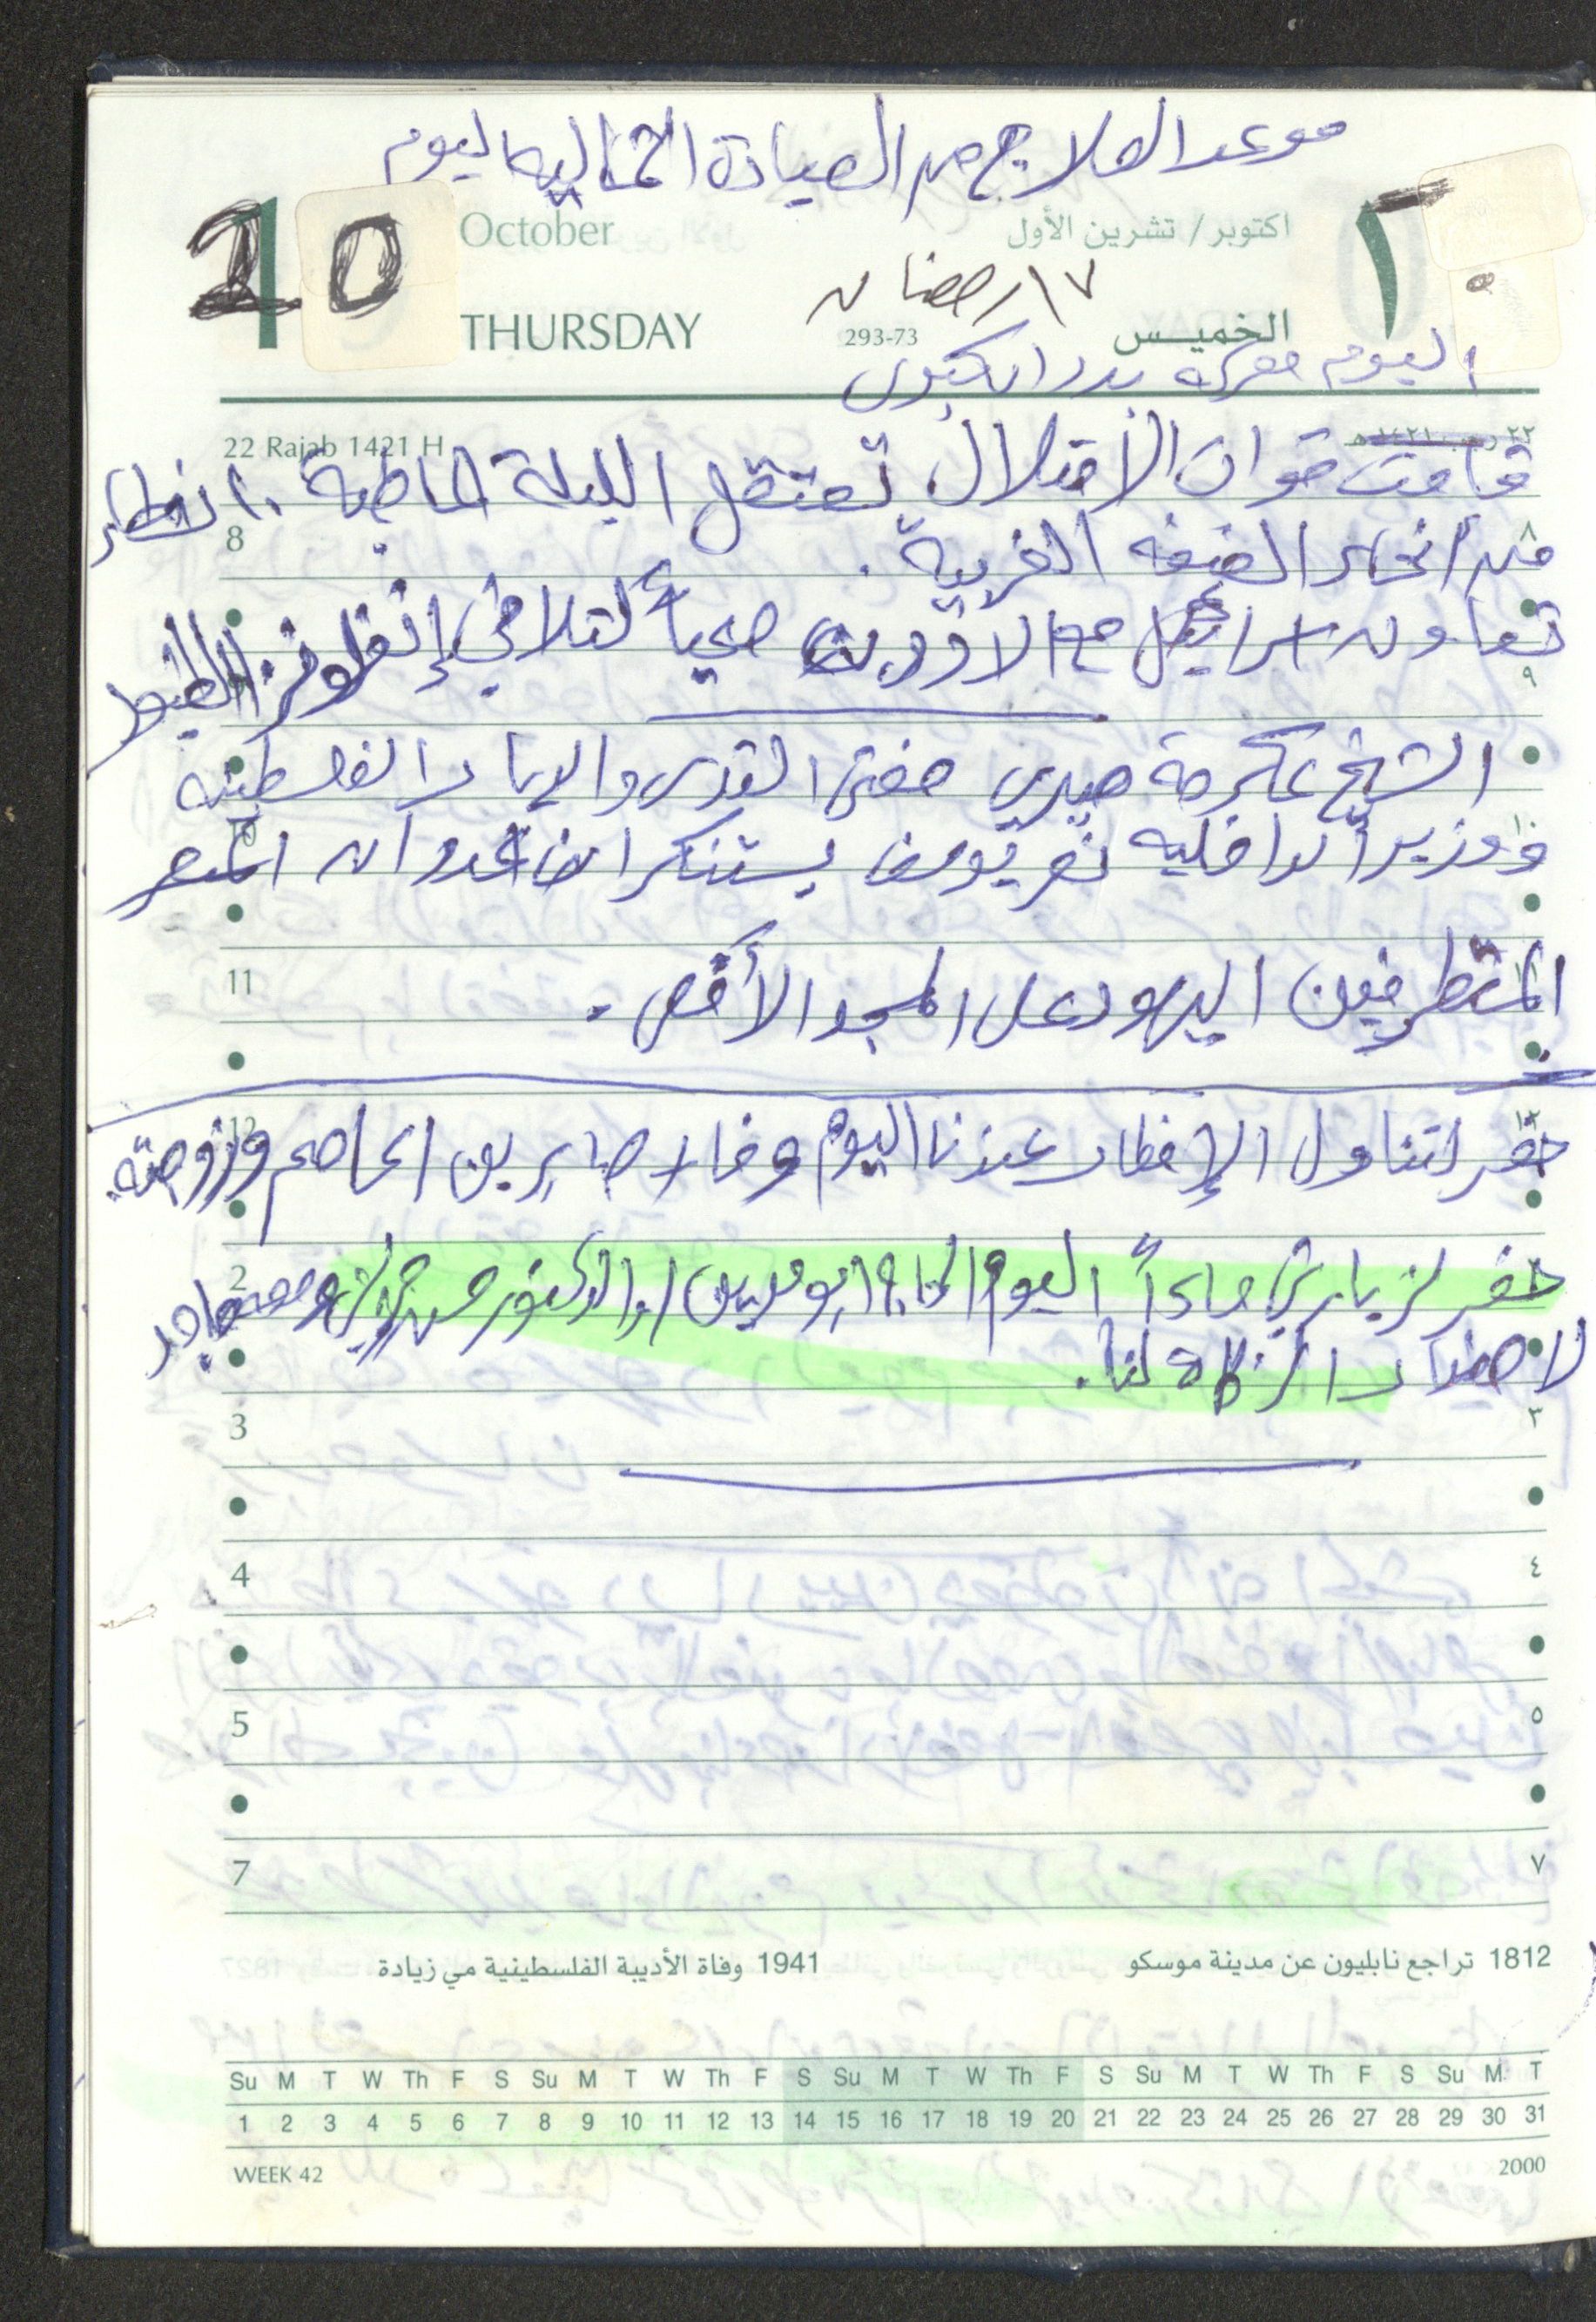 موعد العلاج من العيادة الخماليه اليوم
20 October اكتوبر / تشرين الأول ٢٠
١٧ رمضان
THURSDAY 293-73 الخميس
اليوم معركه بدر الكبرى
22 Rajab 1421 H ٢٢ رجب ١٤٢١ هـ
قامت قوات الأحتلال تعتقل الليلة الماضية ١٠ انفار
8 من أنحاء الضفه الغربية. ٨
تعاون اسرائيل مع الاردن صحياً لتلافي إنفلونزا الطيور
9 ٩
الشيخ عكرمة صبري مفتي القدس والديار الفلسطينيه
10 ووزير الداخليه نصر يوسف يستنكران عدوان ١٠
11 المتطرفين اليهود على المسجد الأقصى. ١١
12 حضر لتناول الإفطار عندنا اليوم وفاء صابر بين العاصم وزوجته. ١٢
2 حضر لزيارتي مساءاً اليوم الحاج ابو مدين / والدكتور حسن ومعه
لاحضار الزكاة لنا.
3 ٣
4 ٤
5 ٥
7 ٧
1812 تراجع نابليون عن مدينة موسكو 1941 وفاة الأديبة الفلسطينية مي زيادة
Su M T W Th F S Su M T W Th F S Su M T W Th F S Su M T W Th F S Su M T
1 2 3 4 5 6 7 8 9 10 11 12 13 14 15 16 17 18 19 20 21 22 23 24 25 26 27 28 29 30 31
WEEK 42 2000